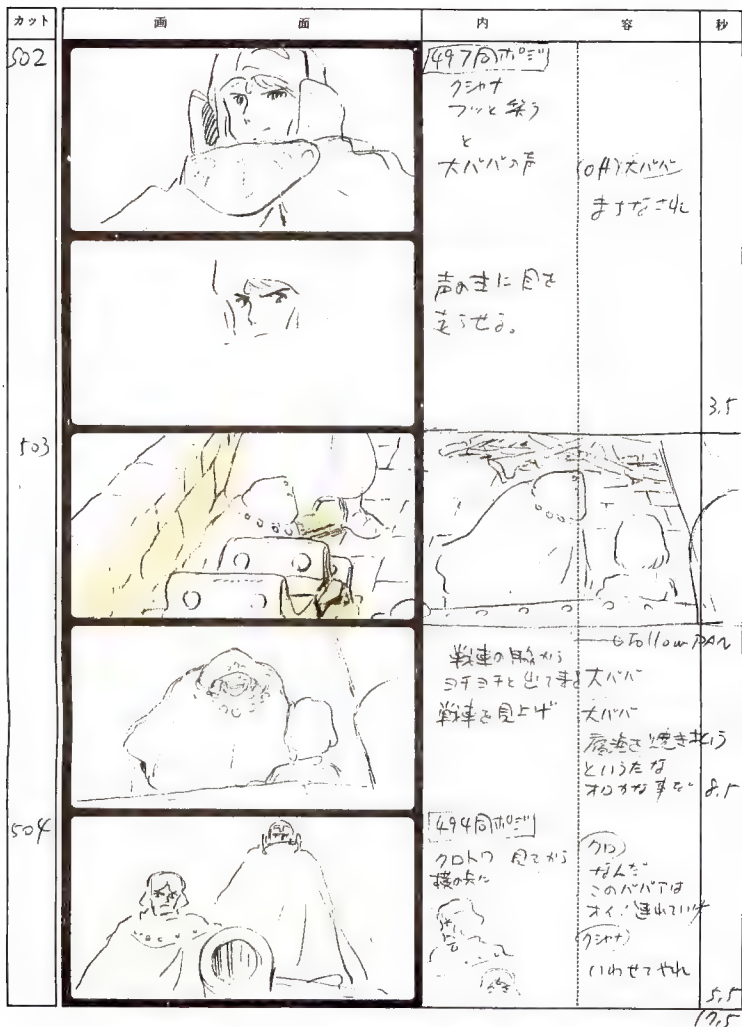 カット 画 面 内 容 秒
502
497同ポジ
クシャナ
フッと笑う
と
大ババの声
(off)大ババ
まちなされ
声の主に目を
走らせる。
3.5
503
Follow PAN
戦車の脇から
ヨチヨチと出て来る
戦車を見上げ
大ババ
大ババ
腐海を焼き払う
というたな
オロカな事を
8.5
504
494同ポジ
クロトワ 見てから
クロ
なんだ
このババアは
オイ! 連れていけ
クシャナ
いわせてやれ
5.5
17.5